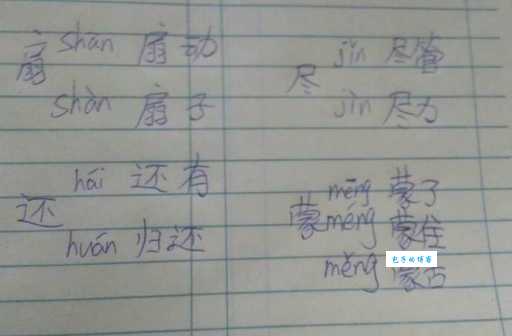 扇
shān 扇动
shàn 扇子
还
hái 还有
huán 归还
尽
jǐn 尽管
jìn 尽力
蒙
mēng 蒙了
méng 蒙住
měng 蒙古